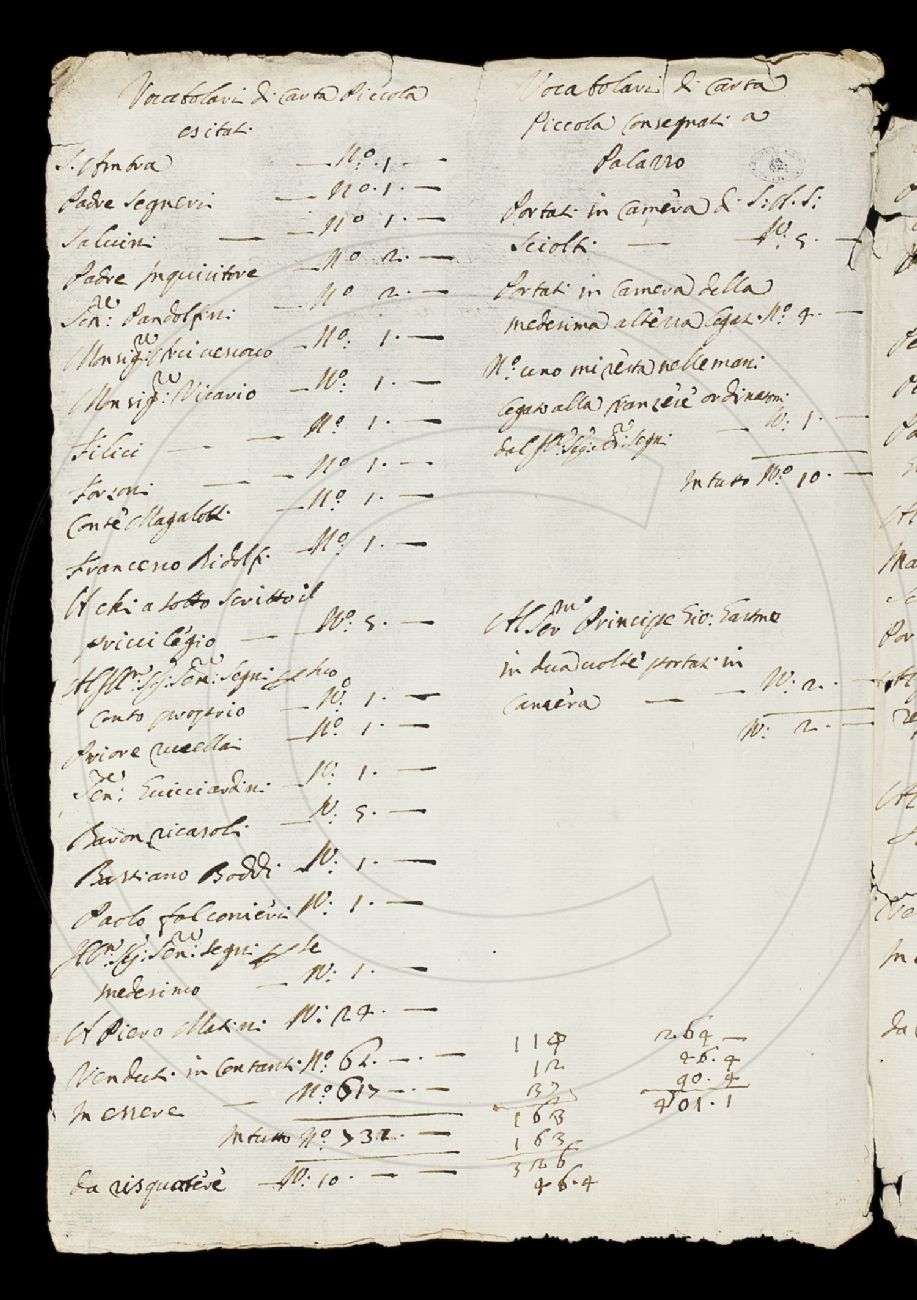 Vocabolari di Carta Piccola
esitati
S. Ambra — N.º 1. —
Padre Segneri — N.º 1. —
Salvini — N.º 1. —
Padre Inquisitore — N.º 2. —
Sen.re Pandolfini — N.º 2. —
Monsig.re Arcivescovo — N.º: 1. —
Monsig.re Vicario — N.º: 1. —
Filici — N.º 1. —
Forzoni — N.º 1. —
Conte Magalotti — N.º 1. —
Francesco Ridolfi — N.º 1. —
A chi a sotto scritto il
privilegio — N.º: 5. —
All Ill.mo Sig: Sen.re: Segni suo
conto proprio — N.º 1. —
Priore rucellai — N.º: 1. —
Sen.re: Guicciardini — N: 1. —
Baron ricasoli — N: 5. —
Bastiano Boddi — N: 1. —
Paolo falconieri N: 1. —
Sig: Sen.re: Segni se
medesimo — N: 1. —
A Piero Matini N: 24. —
Venduti in contanti N.º 62. — —
In essere — N.º 617 — —
In tutto N.º 732. —
da risquotere — N: 10. — —
Vocabolari di Carta
Piccola Consegnati a
Palazzo
Portati in Camera di S: A: S:
Sciolti — N: 5. —
Portati in Camera della
medesima altezza legati N.º 4. —
N.º uno mi resta nelle mani
legato alla franzese ordinatomi
dal Sig: Segni — N: 1. —
In tutto N.º 10. —
Al Ser.mo Principe Gio: Gastone
in dua volte portati in
camera — — N: 2. —
N: 2. —
114
12
37
163
163
326
46.4
264 —
46.4
90.4
401.1